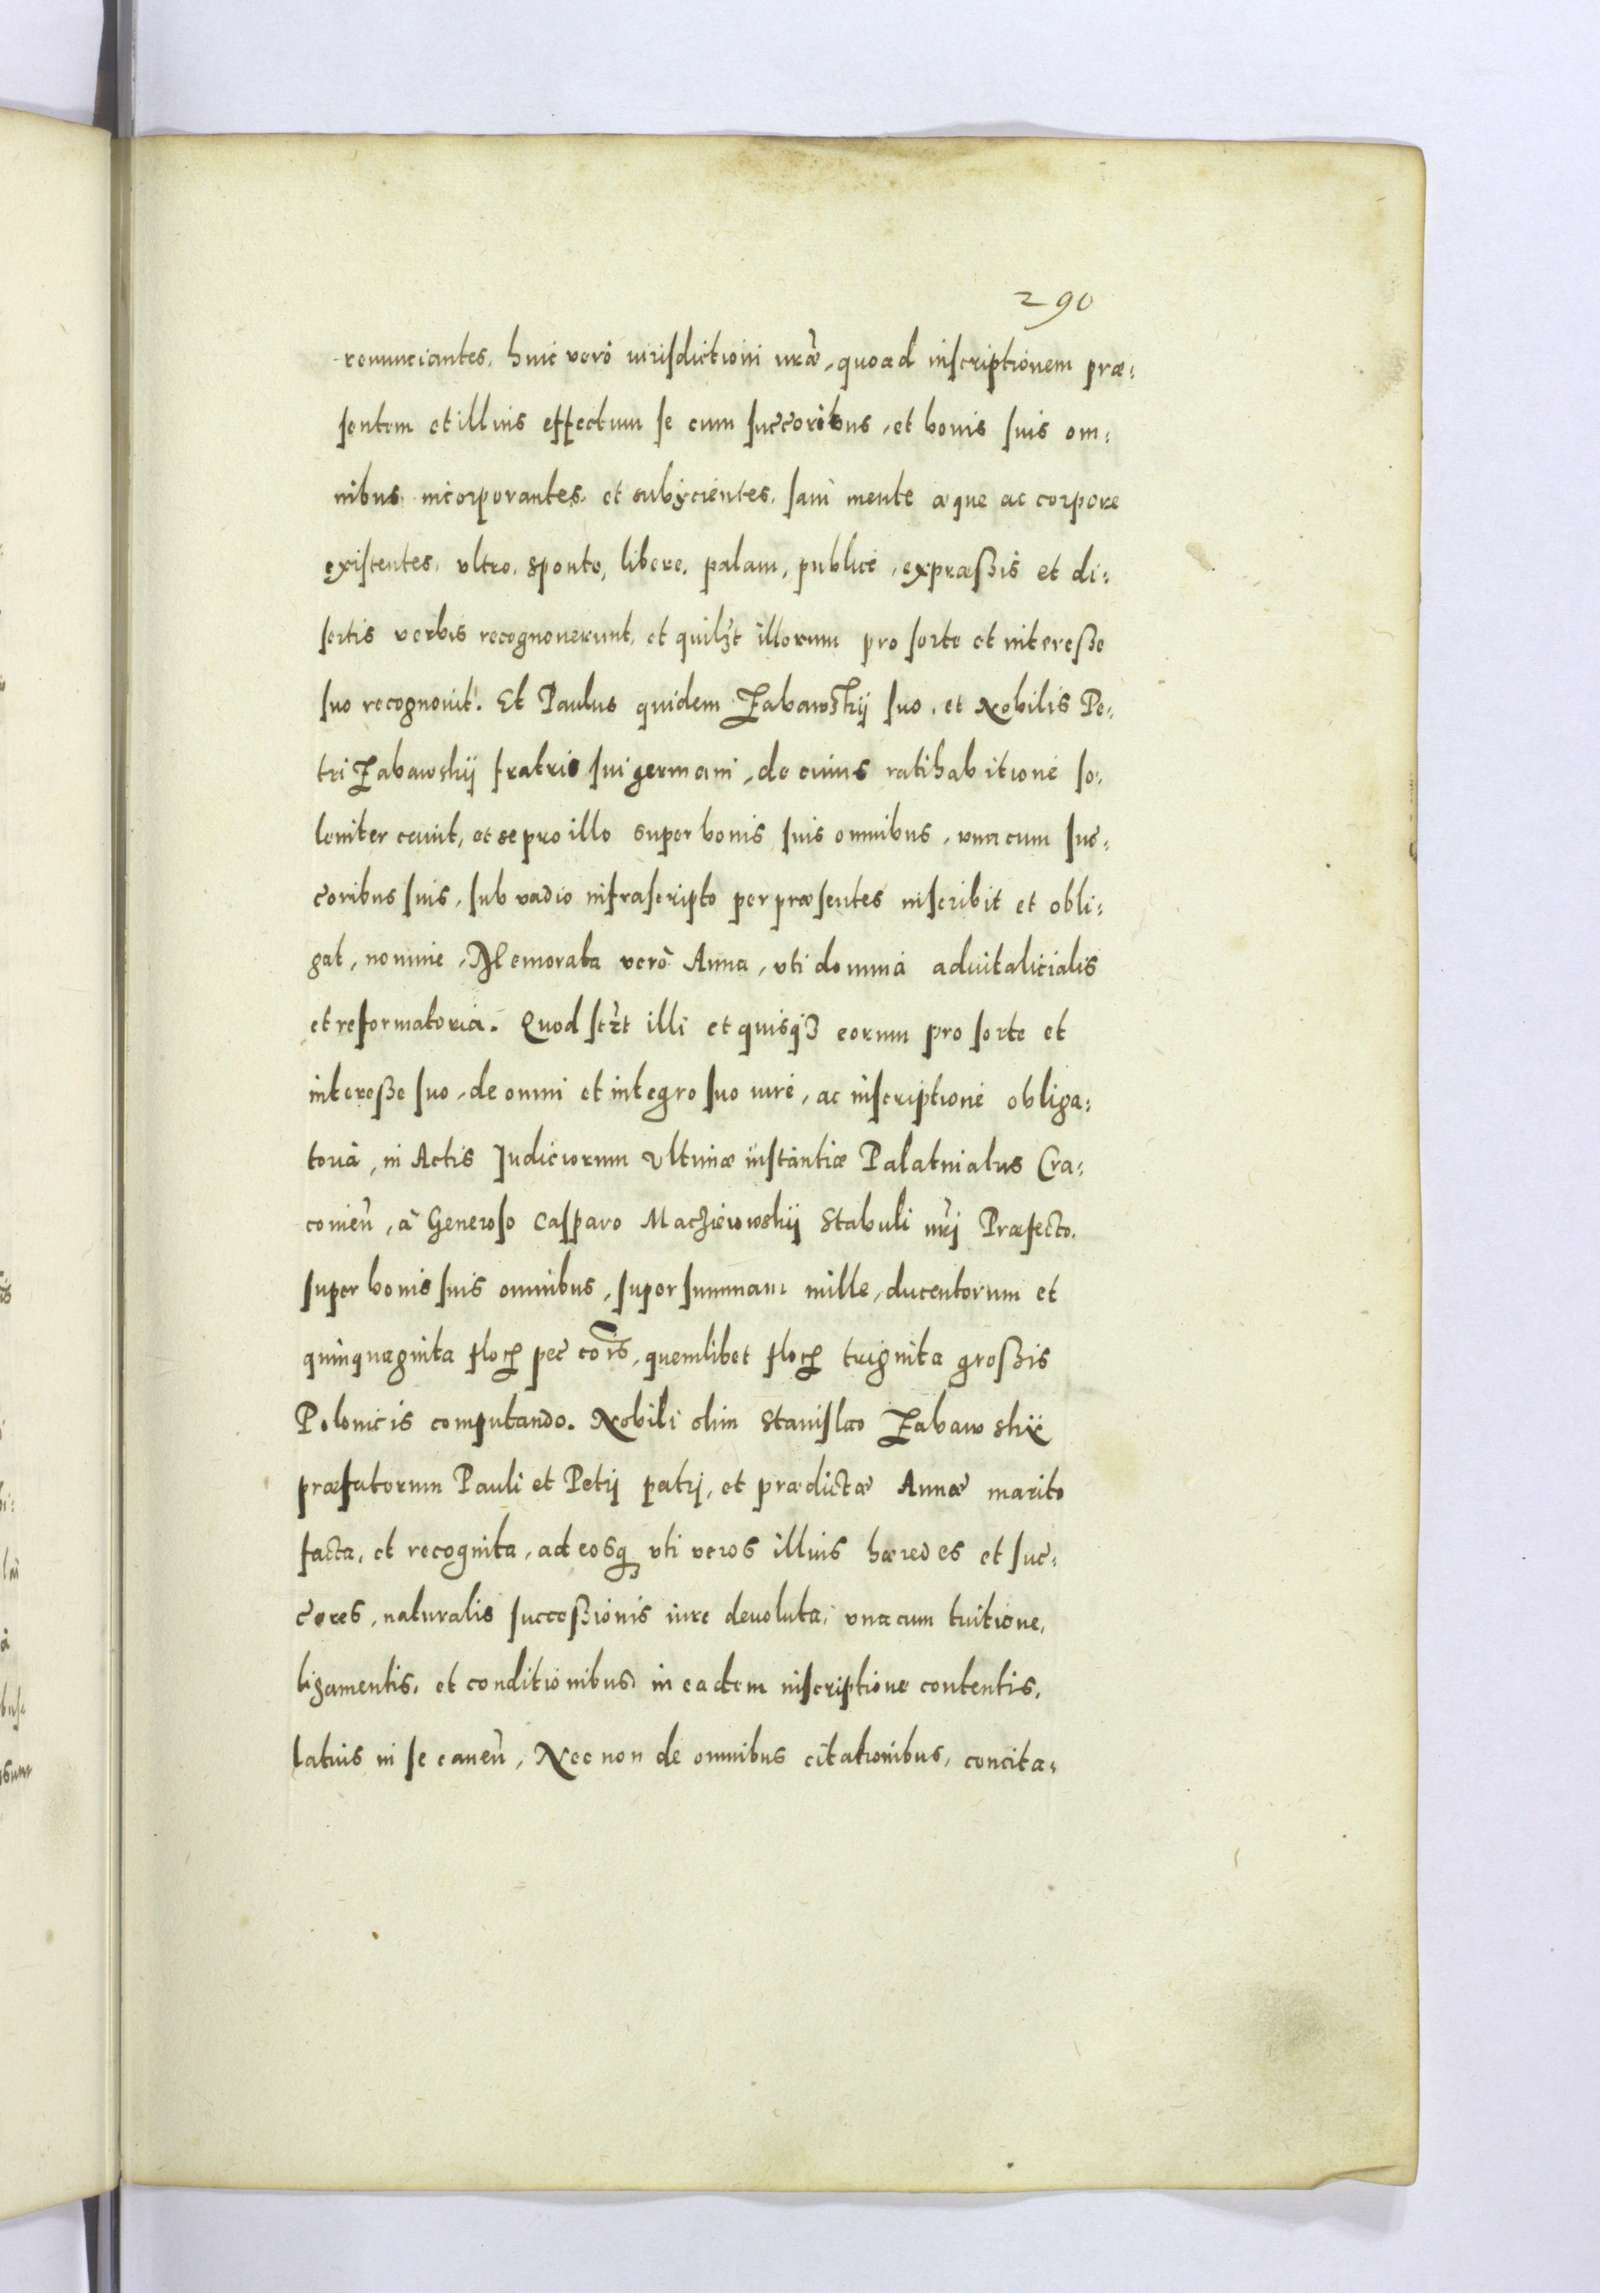 290
renunciantes, huic verò iurisdictioni nr̃æ, quoad inscriptionem præ:
sentem et illius effectum se cum succ̃oribus, et bonis suis om:
nibus incorporantes, et subÿcientes, sani mente æque ac corpore
existentes, vltro, sponte, libere, palam, publicè, expræßis et di:
sertis verbis recognouerunt, et quilꝫt illorum pro sorte et intereße
suo recognouit. Et Paulus quidem Zabawskij suo, et Nobilis Pe:
tri Zabawskij fratris sui germani, de cuius ratihabitione so:
leniter cauit, et se pro illo super bonis suis omnibus, vna cum suc̃:
c̃oribus suis, sub vadio infrascripto per præsentes inscribit et obli:
gat, nomine, Memorata verò Anna, vti domina aduitalicialis
et reformatoria. Quod scꝫt illi et quisqꝫ eorum pro sorte et
intereße suo, de omni et integro suo iure, ac inscriptione obliga:
toria, in Actis Judiciorum Vltimæ instantiæ Palatinatus Cra:
couien̄, à Generoso Casparo Macżieiowskij Stabuli nr̃i Præfecto,
super bonis suis omnibus, super summam mille, ducentorum et
quinquaginta floꝝ pec̃ cõis, quemlibet floꝝ triginta großis
Polonicis computando. Nobili olim Stanislao Zabawskij
præfatorum Pauli et Petri patri, et prædictæ Annæ marito
facta, et recognita, ad eosqꝫ vti veros illius hæredes et suc̃:
c̃ores, naturalis succeßionis iure deuoluta, vna cum tuitione,
ligamentis, et conditionibus in eadem inscriptione contentis,
latius in se canen̄, Nec non de omnibus citationibus, concita: